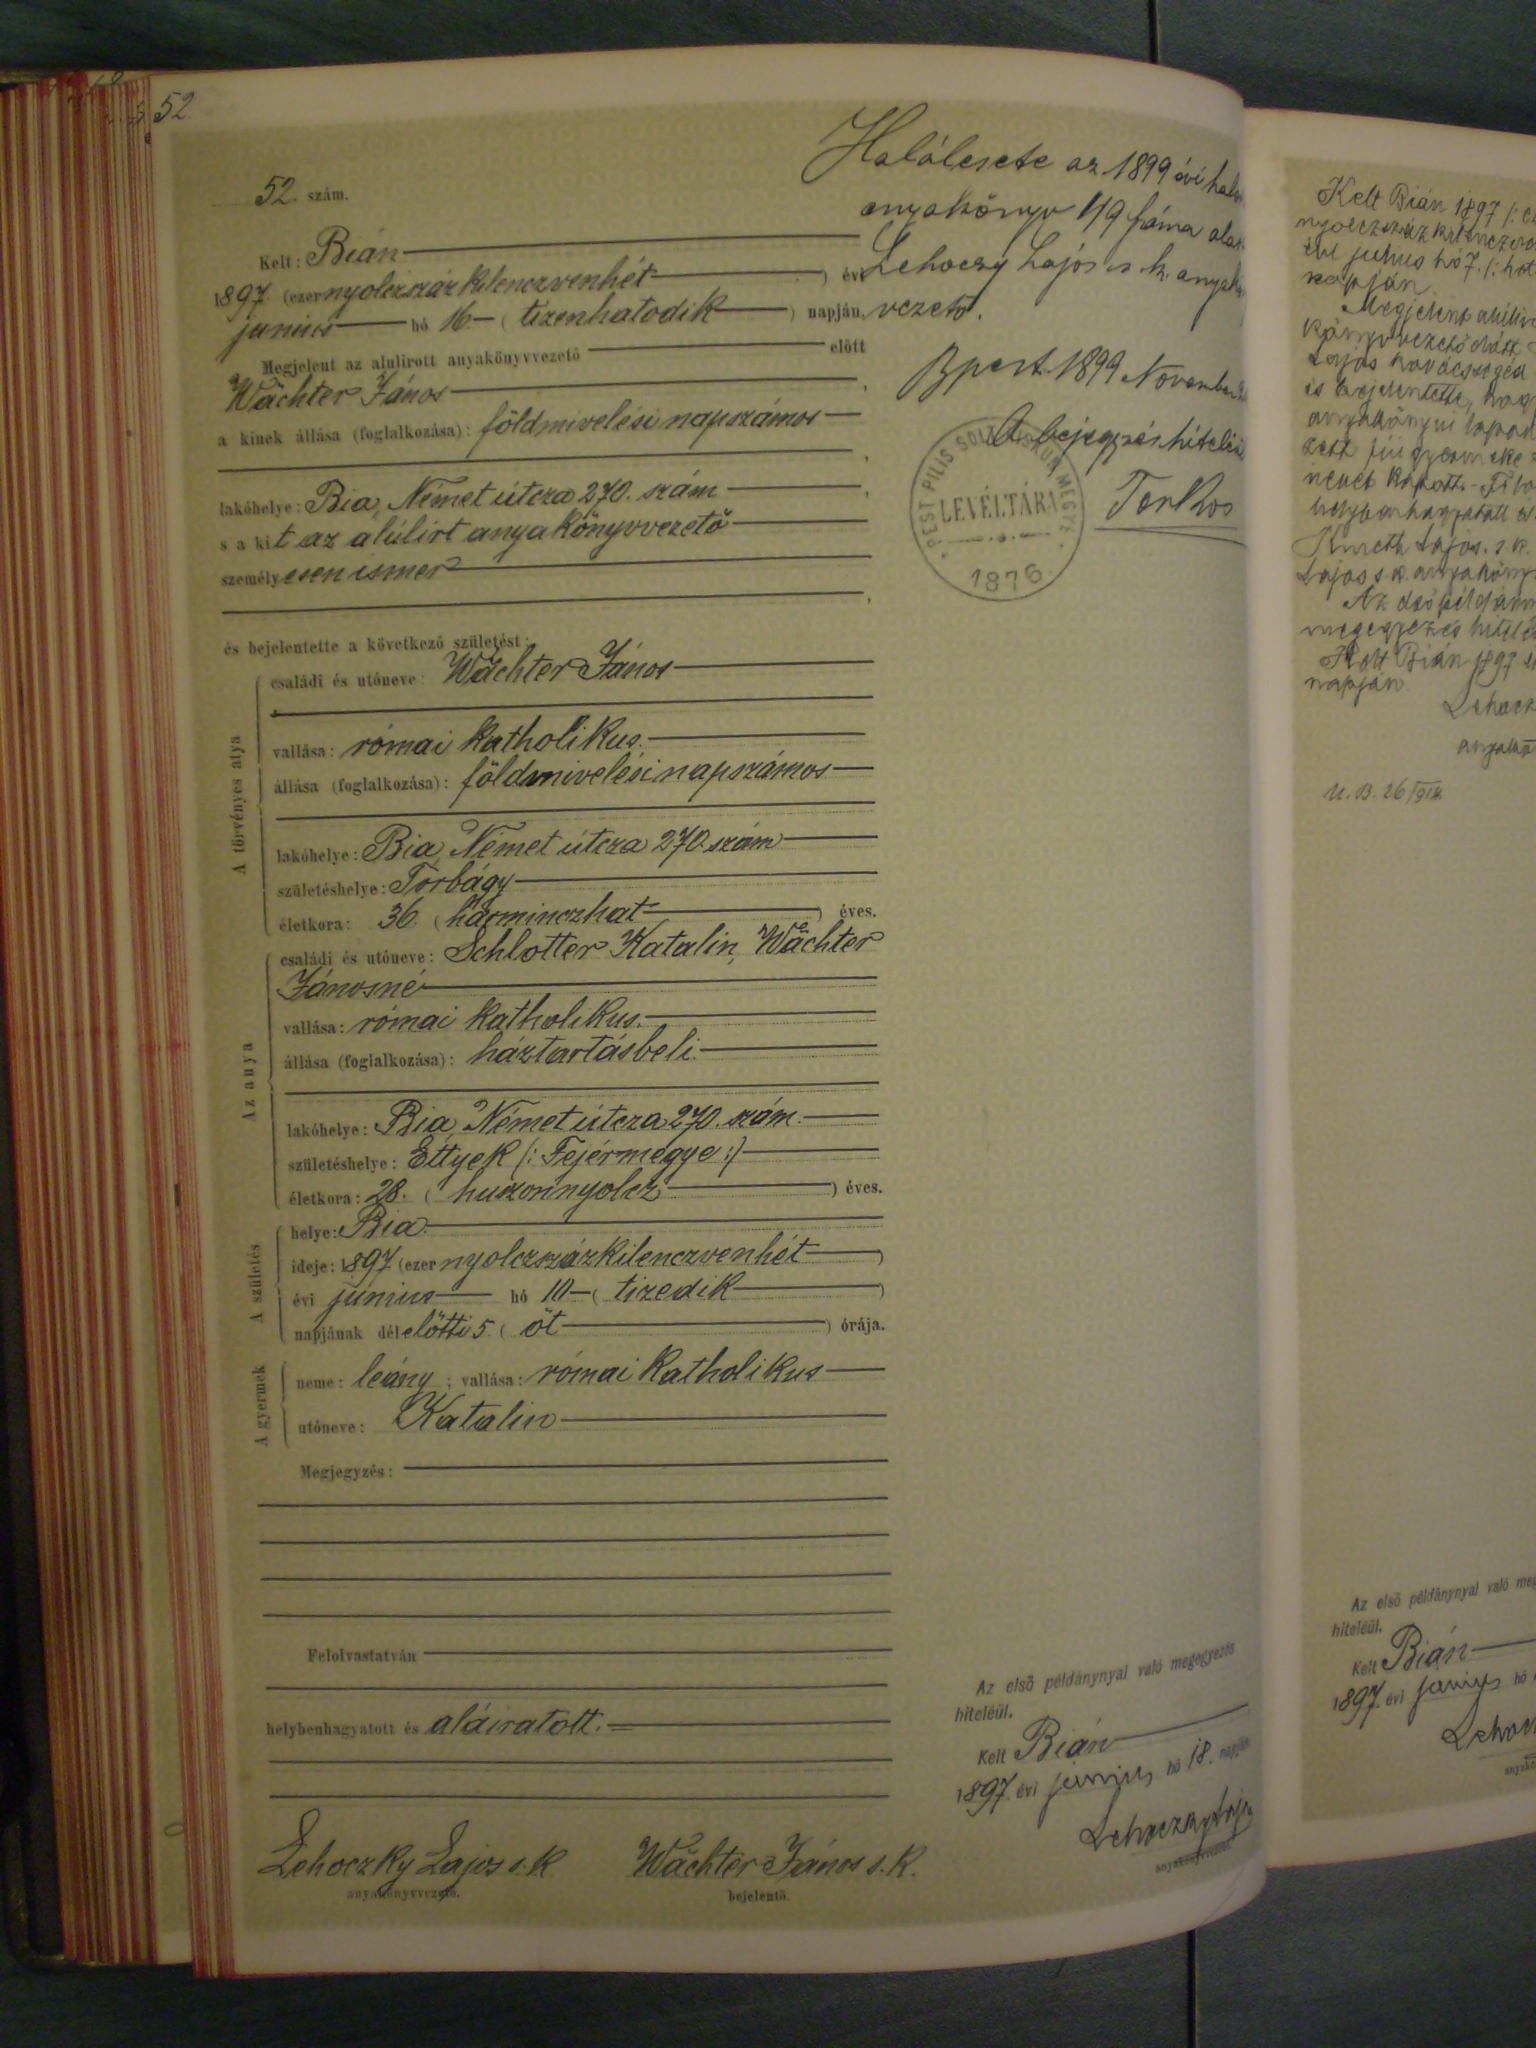 52.
52. szám.
Kelt: Bián
1897. (ezer nyolczszázkilenczvenhét) évi
junius hó 16 (tizenhatodik) napján,
Megjelent az alulirott anyakönyvvezető előtt
Wächter János,
a kinek állása (foglalkozása): földmivelési napszámos
,
lakóhelye: Bia, Német útcza 270. szám,
s a kit az alúlirt anyakönyvvezető
személyesen ismer
,
és bejelentette a következő születést:
A törvényes atya
családi és utóneve: Wächter János
vallása: római katholikus.
állása (foglalkozása): földmivelési napszámos
lakóhelye: Bia, Német útcza 270. szám
születéshelye: Torbágy
életkora: 36. (harminczhat) éves.
Az anya
családi és utóneve: Schlotter Katalin, Wächter
Jánosné
vallása: római katholikus.
állása (foglalkozása): háztartásbeli.
lakóhelye: Bia, Német útcza 270. szám.
születéshelye: Ettyek (: Fejérmegye :)
életkora: 28. (huszonnyolcz) éves.
A születés
helye: Bia.
ideje: 1897 (ezer nyolczszázkilenczvenhét)
évi június hó 10 (tizedik)
napjának délelőtti 5. (öt) órája.
A gyermek
neme: leány; vallása: római katholikus
utóneve: Katalin
Megjegyzés:
Felolvastatván
helybenhagyatott és aláiratott.
Lehoczky Lajos s. k.
anyakönyvvezető.
Wächter János s. k.
bejelentő.
Halálesete az 1899 évi
anyakönyv 119 száma
Lehoczky Lajos s. k.
vezető.
Bpest 1899 November
A bejegyzés hiteléül
Torkos
PEST PILIS SOLT KISKUN MEGYE
LEVÉLTÁRA
1876
Az első példánynyal való megegyezés
hiteléül.
Kelt Bián
1897. évi június hó 18. napján
Lehoczky Lajos
anyakönyvvezető.
Kelt Bián 1897
évi julius hó 7.
napján.
Megjelent
könyvvezető előtt
Lajos kovácssegéd
és bejelentette, hogy
anyakönyvi
nevet kapott.
helybenhagyatott
Lajos s. k.
Az első
megegyezés
Kelt Bián 1897
napján
Az első példánynyal való
hiteléül.
Kelt Bián
1897. évi június hó